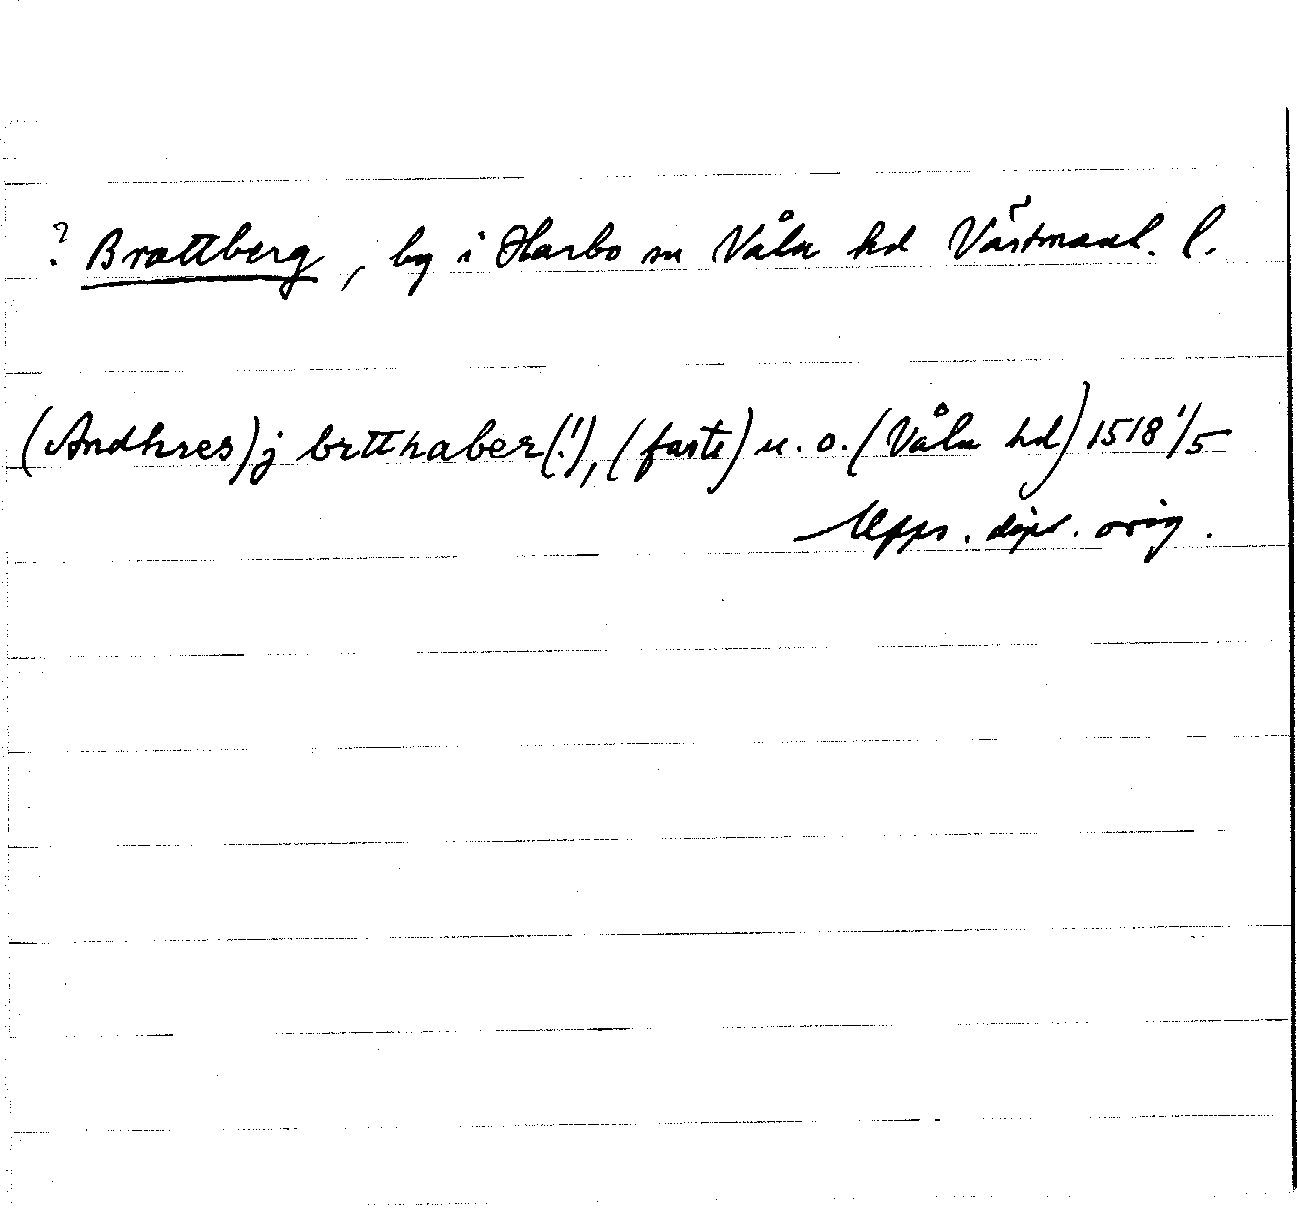 ? Brattberg, by i Harbo sn Våla hd Västmanl. l.
(Andhres) j brtthaber(!), (faste) u. o. (Våla hd) 1518 1/5
Upps. dipl. orig.